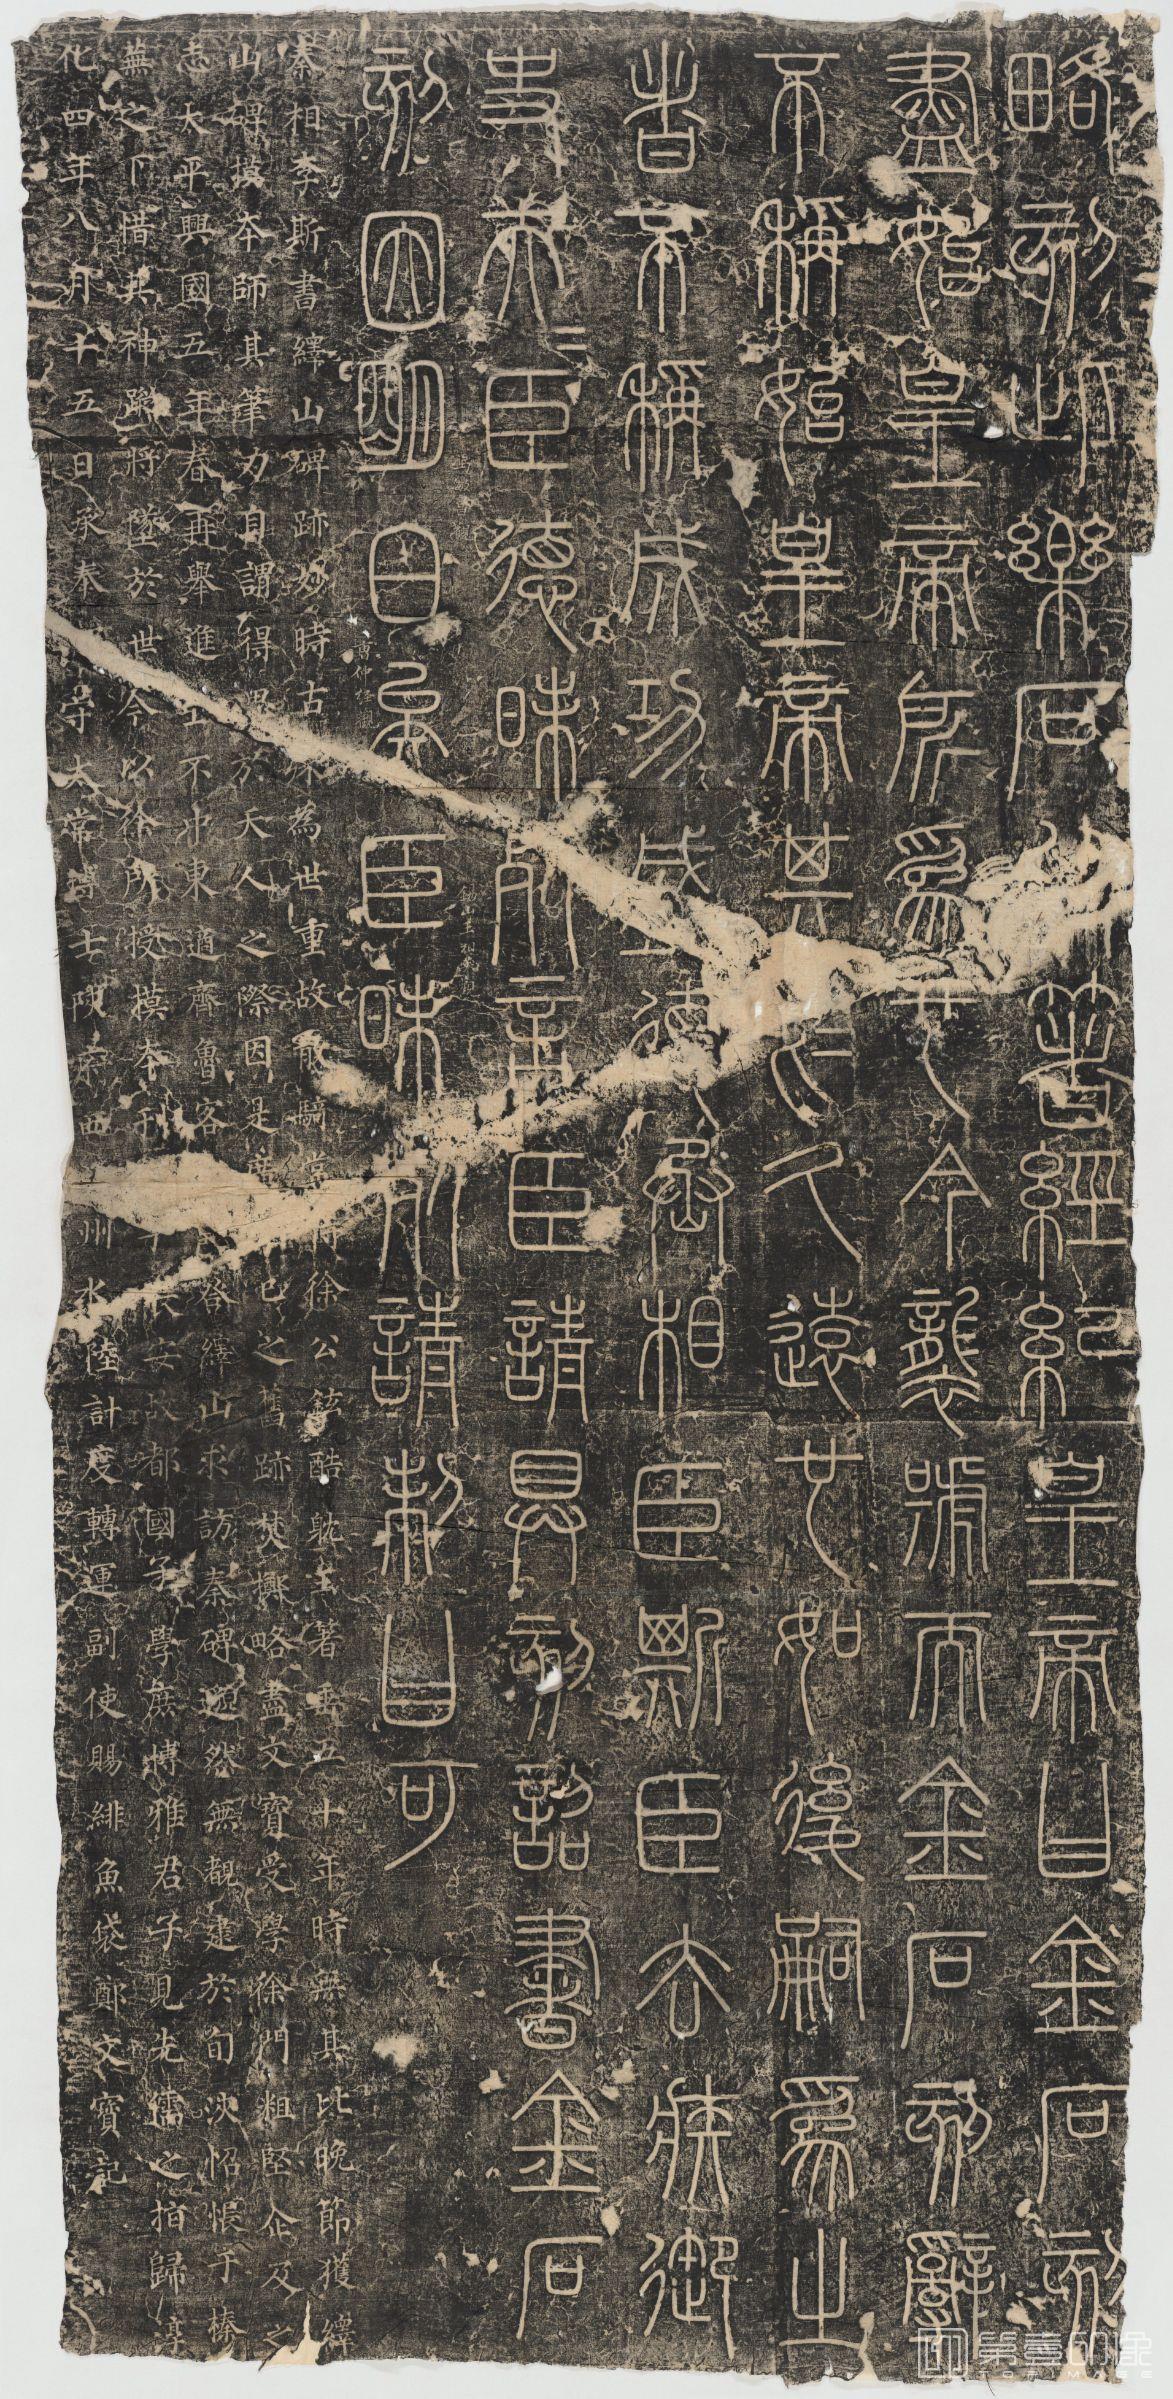 略刻此樂石以著經紀皇帝曰金石刻
盡始皇帝所爲也今襲號而金石刻辭
不稱始皇帝其於久遠也如後嗣爲之
者不稱成功盛德丞相臣斯臣去疾御
史夫=臣德昧死言臣請具刻詔書金石
刻因明白矣臣昧死請制曰可
秦相李斯書繹山碑跡妙時古殊為世重故散騎常侍徐公鉉酷耽玉箸垂五十年時無其比晚節獲繹
山碑摸本師其筆力自謂得思於天人之際因是廣己之舊跡焚擲略盡文寶受學徐門粗堅企及之
志太平興國五年春再舉進士不中東適齊魯客鄒邑登繹山求訪秦碑邈然無覩逮於旬浹怊悵于榛
蕪之下惜其神蹤將墜於世今以徐所授摸本刊石于長安故都國子學庶博雅君子見先儒之指歸淳
化四年八月十五日承奉郎守太常博士陝府西諸州水陸計度轉運副使賜緋魚袋鄭文寶記